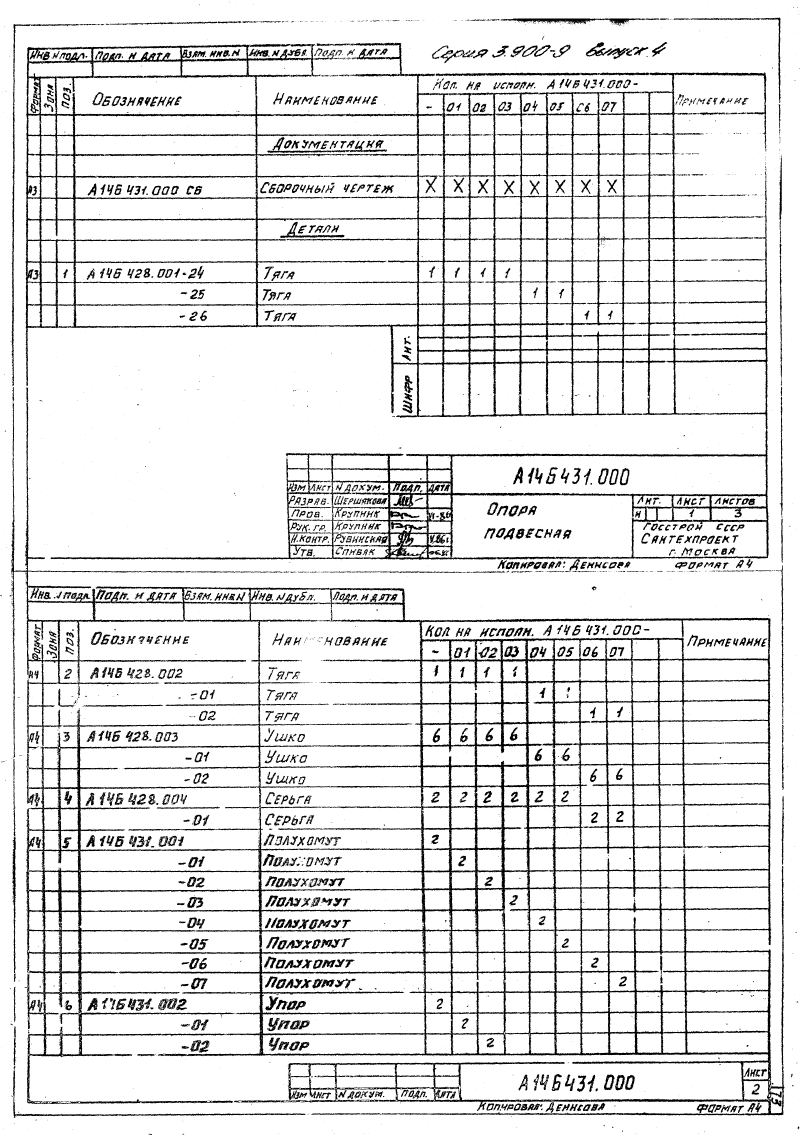 Серия 3.900-9 Выпуск 4
ИНВ.N ПОДЛ. ПОДП. И ДАТА ВЗАМ. ИНВ.N ИНВ.N ДУБЛ ПОДП. И ДАТА
ФОРМАТ ЗОНА ПОЗ. ОБОЗНАЧЕНИЕ НАИМЕНОВАНИЕ КОЛ. НА ИСПОЛН. А14Б431.000- ПРИМЕЧАНИЕ
- 01 02 03 04 05 06 07
ДОКУМЕНТАЦИЯ
А3 А14Б431.000 СБ СБОРОЧНЫЙ ЧЕРТЕЖ X X X X X X X X
ДЕТАЛИ
А3 1 А14Б 428.001-24 ТЯГА 1 1 1 1
-25 ТЯГА 1 1
-26 ТЯГА 1 1
ЛИТ.
ШИФР
А14Б431.000
ИЗМ ЛИСТ N ДОКУМ. ПОДП. ДАТА
РАЗРАБ. ШЕРШАКОВА
ПРОВ. КРУПНИК
РУК. ГР. КРУПНИК
Н.КОНТР. РУБИНСКАЯ
УТВ. СПИВАК
ОПОРА
ПОДВЕСНАЯ
ЛИТ. ЛИСТ ЛИСТОВ
И 1 3
ГОССТРОЙ СССР
САНТЕХПРОЕКТ
г. МОСКВА
КОПИРОВАЛ: ДЕНИСОВА ФОРМАТ А4
ИНВ. N ПОДЛ. ПОДП. И ДАТА ВЗАМ. ИНВ.N ИНВ. N ДУБЛ. ПОДП. И ДАТА
ФОРМАТ ЗОНА ПОЗ. ОБОЗНАЧЕНИЕ НАИМЕНОВАНИЕ КОЛ НА ИСПОЛН. А14Б431.000- ПРИМЕЧАНИЕ
- 01 02 03 04 05 06 07
А4 2 А14Б 428.002 ТЯГА 1 1 1 1
-01 ТЯГА 1 1
-02 ТЯГА 1 1
А4 3 А14Б 428.003 УШКО 6 6 6 6
-01 УШКО 6 6
-02 УШКО 6 6
А4 4 А14Б 428.004 СЕРЬГА 2 2 2 2 2 2
-01 СЕРЬГА 2 2
А4 5 А14Б 431.001 ПОЛУХОМУТ 2
-01 ПОЛУХОМУТ 2
-02 ПОЛУХОМУТ 2
-03 ПОЛУХОМУТ 2
-04 ПОЛУХОМУТ 2
-05 ПОЛУХОМУТ 2
-06 ПОЛУХОМУТ 2
-07 ПОЛУХОМУТ 2
А4 6 А14Б431.002 УПОР 2
-01 УПОР 2
-02 УПОР 2
ИЗМ ЛИСТ N ДОКУМ. ПОДП. ДАТА
А14Б431.000
ЛИСТ
2
КОПИРОВАЛ: ДЕНИСОВА ФОРМАТ А4